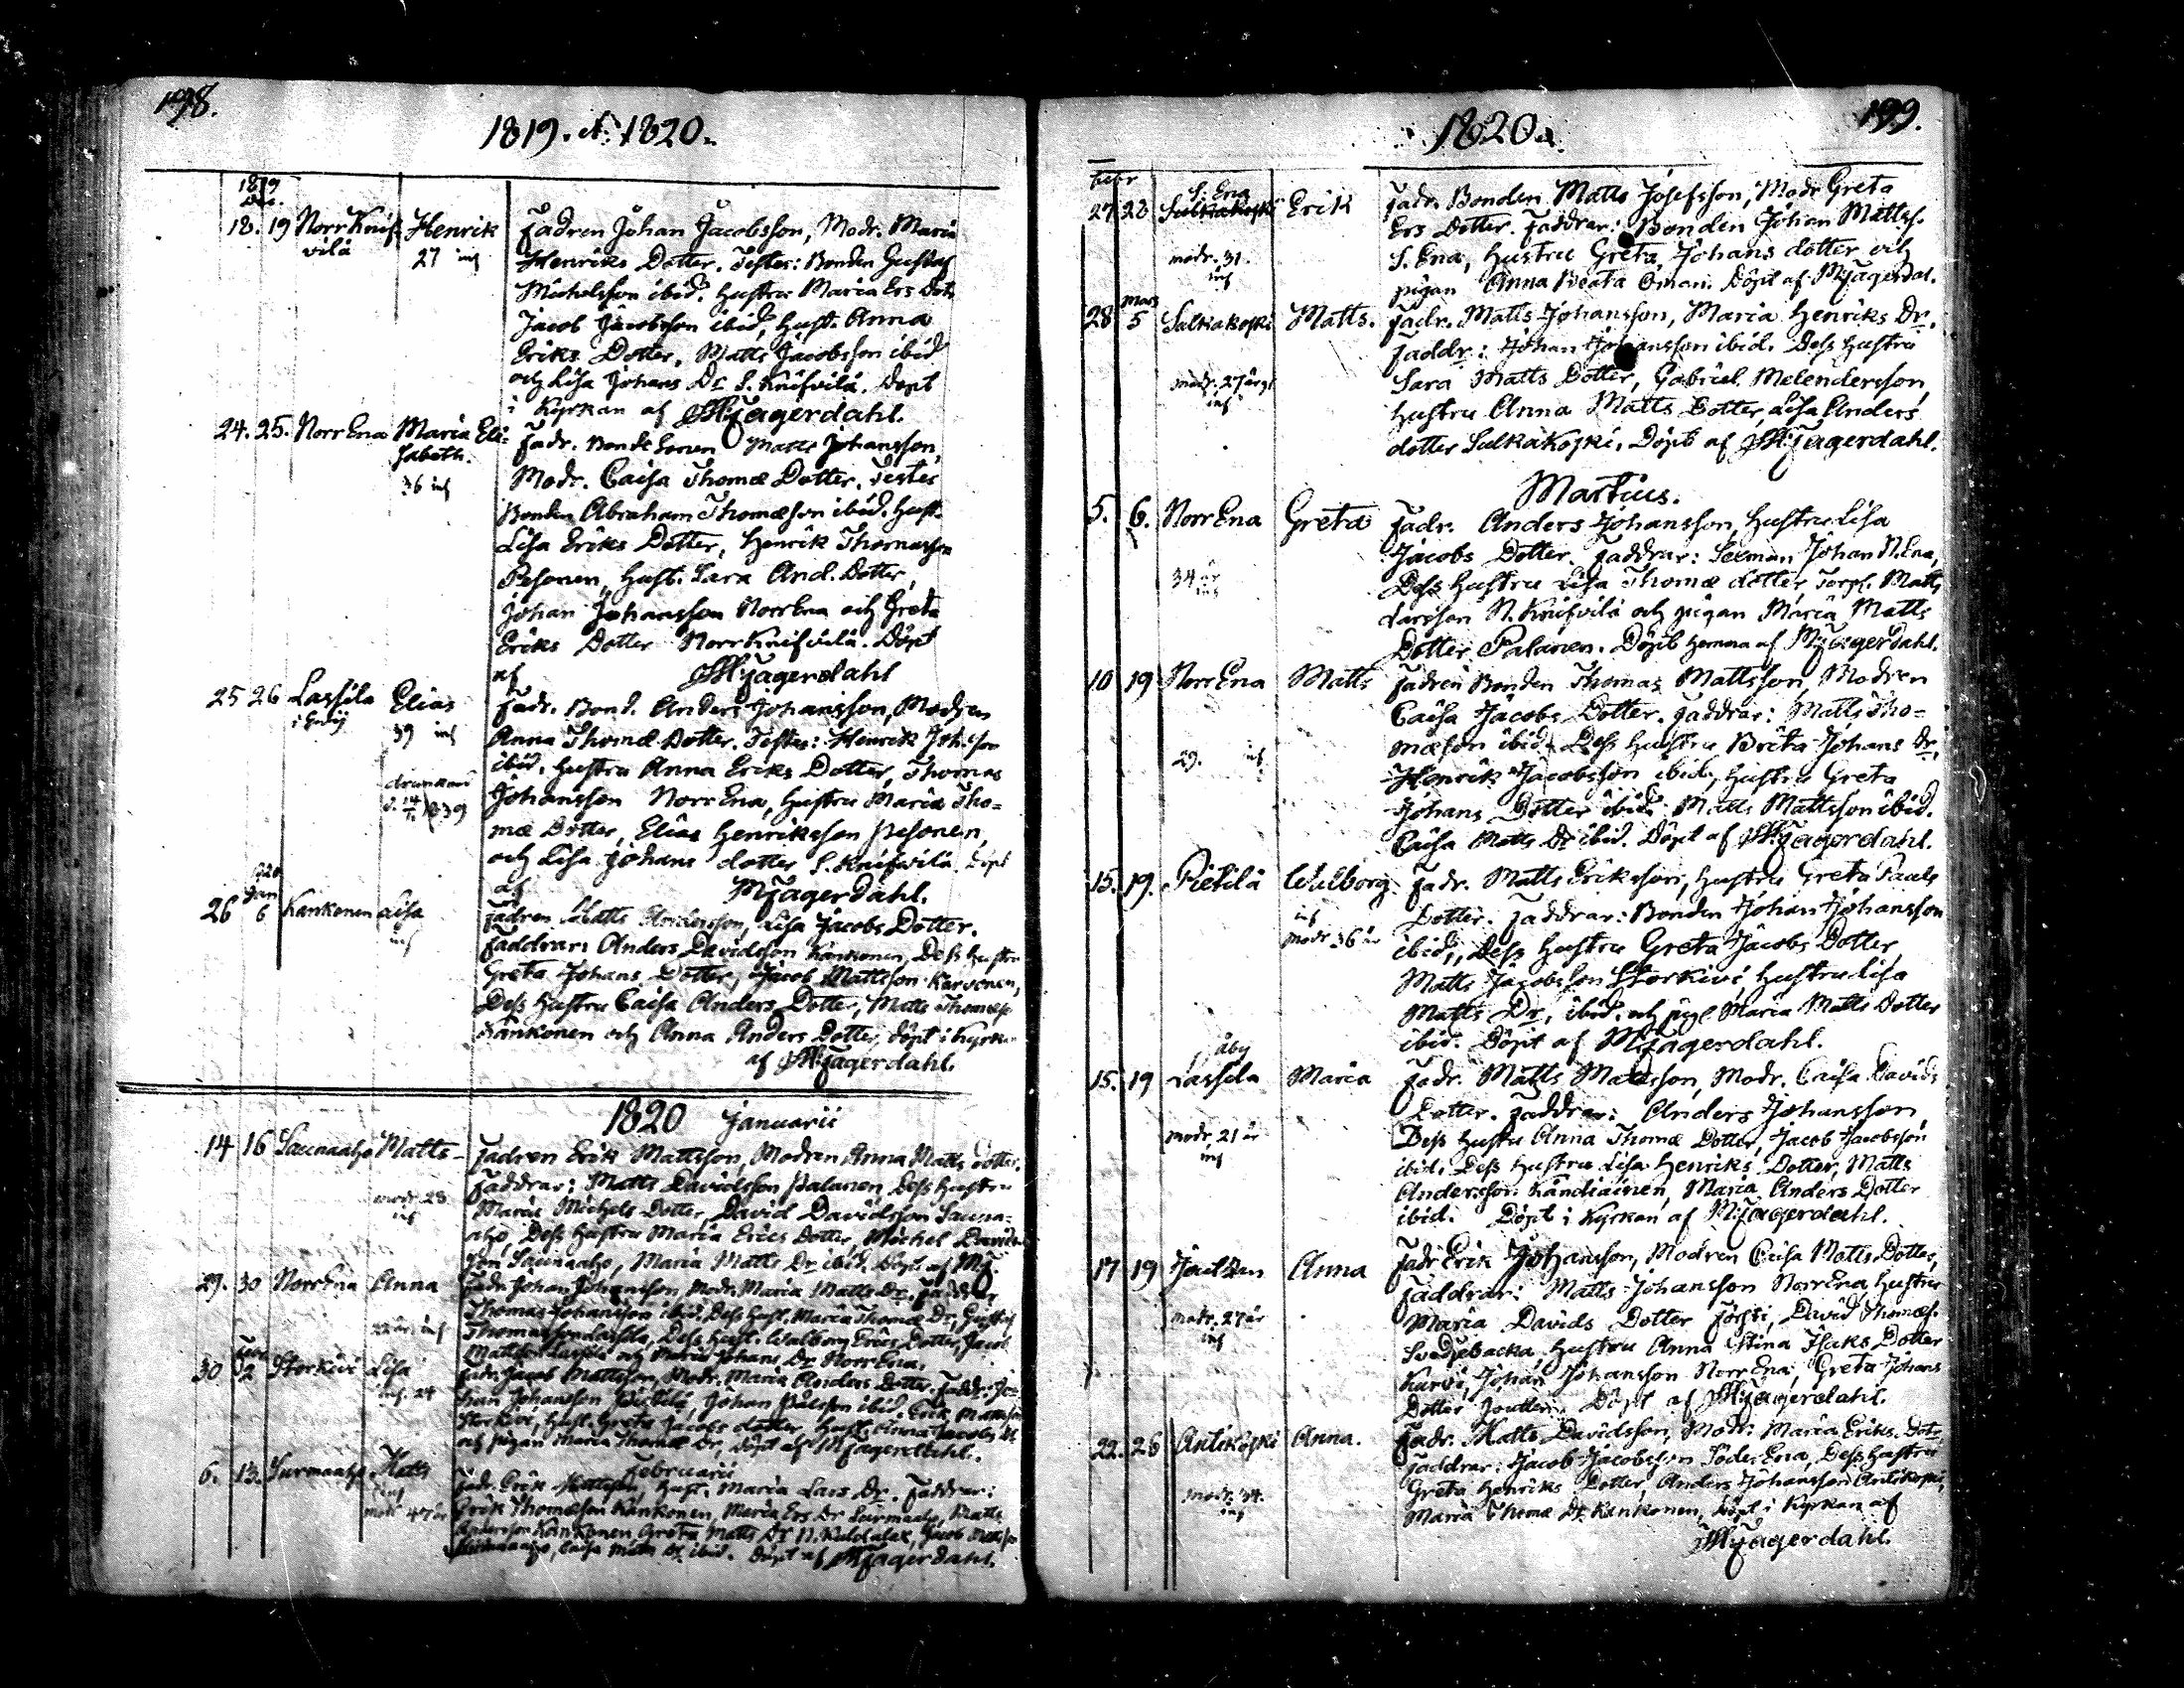 198.
1819. et. 1820.
1819
Dec.
18. 19 Norr Knif- Henrik Fadren Johan Jacobsson, Modr. Maria
vilä 27 inh Henriks Dotter. Testes: Bonden Gustaf
Michelsson ibid. Hustru Maria Ers Dotr
Jacob Jacobsson ibid, Hust. Anna
Eriks Dotter, Matts Jacobsson ibid
och Lisa Johans Dr S. Knifvilä. Döpt
i Kyrkan af MJagerdahl.
24. 25. Norr Ena Maria Eli- Fadr. Bonde Sonen Matts Johansson,
sabeth. Modr. Caisa Thomæ Dotter. Testes
36 inh Bonden Abraham Thomæson ibid. Hust.
Lisa Eriks Dotter, Henrik Thomasson
Pesonen, Hust. Sara And. Dotter,
Johan Johansson Norr Ena och Greta
Eriks Dotter Norr Knifvilä. Döpt
af MJagerdahl
25 26 Lassila Elias Fadr. Bond. Anders Johansson, Modren
39 inh Anna Thomæ Dotter. Testes: Henrik Joh.son
ibid. Hustru Anna Eriks Dotter, Thomas
drunknad Johansson Norr Ena, Hustru Maria Tho-
1839 mæ Dotter, Elias Henriksson Pesonen,
och Lisa Johans dotter S. Knifvilä. Döpt
af MJagerdahl.
1820
Jan
26 6 Kankonen Lisa Fadren Matts Andersson, Lisa Jacobs Dotter.
inh Faddrar: Anders Davidsson Kankonen, Dess Hustru
Greta Johans Dotter, Jacob Mattsson Karvonen,
Dess Hustru Caisa Anders Dotter, Matts Thomæs.
Känkonen och Anna Anders Dotter, döpt i Kyrkan
af MJagerdahl.
1820 Januarii
14 16 Saunaaho Matts- Fadren Erik Mattsson, Modren Anna Matts dotter.
Faddrar: Matts Davidsson Palanen Dess Hustru
modr. 28 Maria Michels Dotter, David Davidsson Sauna-
inh aho, Dess Hustru Maria Erics Dotter, Michel Davids-
son Saunaaho, Maria Matts Dr ibid. Döpt af MJ.
29. 30 Norr Ena Anna Fadr. Johan Johansson, Modr. Maria Matts Dr. Faddrar
Thomas Johansson ibid. Dess Hust. Maria Thomæ Dr, Gustaf
Thomasson Lassila, Dess Hust. Walborg Erics Dotter, Jacob
Mattsson Lassila och Maria Johans Dr Norr Ena.
Febr
30 2 Storkivi Lisa Fadr. Jacob Mattsson, Modr. Maria Anders Dotter. Faddr: Jo-
inh. 24 han Johansson Pietilä, Johan Pålsson ibid. Erik Mattsson
Storkivi, Hust. Greta Jacobs dotter, Hust. Anna Jacobs Dr
och pigan Maria Thomæ Dr, Döpt af MJagerdahl.
Februarii
6. 13. Surmaaho Matts Fadr. Erik Mattsson, Hust. Maria Lars Dr. Faddrar:
inh Erik Thomæson Känkonen, Maria Ers Dr Surmaaho, Matts
modr 47 år Andersson Känkonen Greta Matts Dr N. Kaldalax, Jacob
Surmaaho, Caisa Matts Dr ibid. Döpt af MJagerdahl.
199.
1820.
Febr
27 28 S. Ena Erik Fadr. Bonden Matts Josefsson, Modr Greta
Ers Dotter. Faddrar: Bonden Johan Mattss.
modr. 31. S. Ena, Hustru Greta Johans dotter och
inh pigan Anna Beata Öman. Döpt af MJagerdal.
Mars
28 5 Salkakoski Matts. Fadr. Matts Johansson, Maria Henriks Dr.
Faddr: Johan Johansson ibid. Dess Hustru
modr. 27 årg. Sara Matts Dotter, Gabriel Melendersson,
inh Hustru Anna Matts Dotter, Lisa Anders
dotter Sulkakoski. Döpt af MJagerdahl.
Martius.
5. 6. Norr Ena Greta Fadr. Anders Johansson, Hustru Lisa
Jacobs Dotter. Faddrar: Sexman Johan N. Ena,
34 år Dess Hustru Lisa Thomæ dotter, Torp. Matts
inh Larsson N. Knifvilä och pigan Maria Matts
Dotter Palanen. Döpt hemma af MJagerdahl.
10 19 Norr Ena Matts Fadren Bonden Thomas Mattsson, Modren
Caisa Jacobs Dotter. Faddrar: Matts Tho-
mæson ibid. Dess Hustru Brita Johans Dr,
29. inh Henrik Jacobsson ibid, Hustru Greta
Johans Dotter ibid. Matts Mattsson ibid.
Caisa Matts Dr ibid. Döpt af MJagerdahl.
15. 19. Pietilä Walborg Fadr. Matts Eriksson, Hustru Greta Pauls
inh Dotter. Faddrar: Bonden Johan Johansson
modr 36 år ibid, Dess Hustru Greta Jacobs Dotter
Matts Jacobsson Storkivi, Hustru Lisa
Matts Dr, ibid. och pig. Maria Matts Dotter
ibid. Döpt af MJagerdahl.
åby
15. 19 Lassila Maria Fadr. Matts Matsson, Modr. Caisa Davids
Dotter. Faddrar: Anders Johansson
modr. 21 år Dess Hustru Anna Thomæ Dotter, Jacob Jacobsson
inh ibid. Dess Hustru Lisa Henriks Dotter, Matts
Andersson Kandiainen, Maria Anders Dotter
ibid. Döpt i Kyrkan af MJagerdahl.
17 19 Joutzen Anna Fadr. Erik Johansson, Modren Caisa Matts Dotter,
Faddrar: Matts Johansson Norr Ena, Hustru
modr. 27 år Maria Davids Dotter Försti, David Thomæs.
inh Svedjebacka Hustru Anna Stina Isaks Dotter
Kurvi, Johan Johansson Norr Ena, Greta Johans
Dotter Joutzen. Döpt af MJagerdahl.
22. 26 Antikoski Anna. Fadr. Matts Davidsson, Modr. Maria Eriks Dotr
Faddrar: Jacob Jacobsson Söder Ena, Dess Hustru
modr. 34. Greta Henriks Dotter, Anders Johansson Antikoski,
inh Maria Thomæ Dr Kankonen, Döpt i Kyrkan af
MJagerdahl.